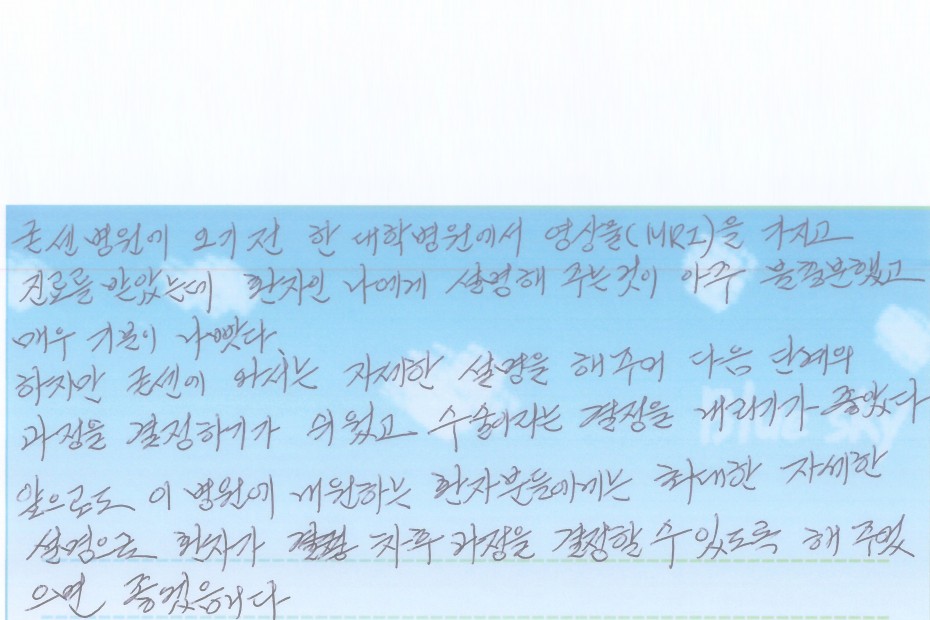 조선병원에 오기 전 한 대학병원에서 영상물(MRI)을 가지고
진료를 받았는데 환자인 나에게 설명해 주는것이 아주 불충분했고
매우 기분이 나빴다
하지만 조선에 와서는 자세한 설명을 해주며 다음 단계의
과정을 결정하기가 쉬웠고 수술이라는 결정을 내리기가 좋았다
Blue sky
앞으로도 이 병원에 내원하는 환자분들에게는 최대한 자세한
설명으로 환자가 차후 과정을 결정할 수 있도록 해 주었
으면 좋겠습니다